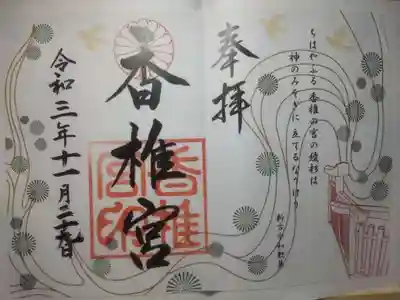 ちはやふる 香椎の宮の綾杉は
神のみそぎに 立てるなりけり
新古今和歌集
奉拝
香椎宮
香椎宮印
令和三年十一月